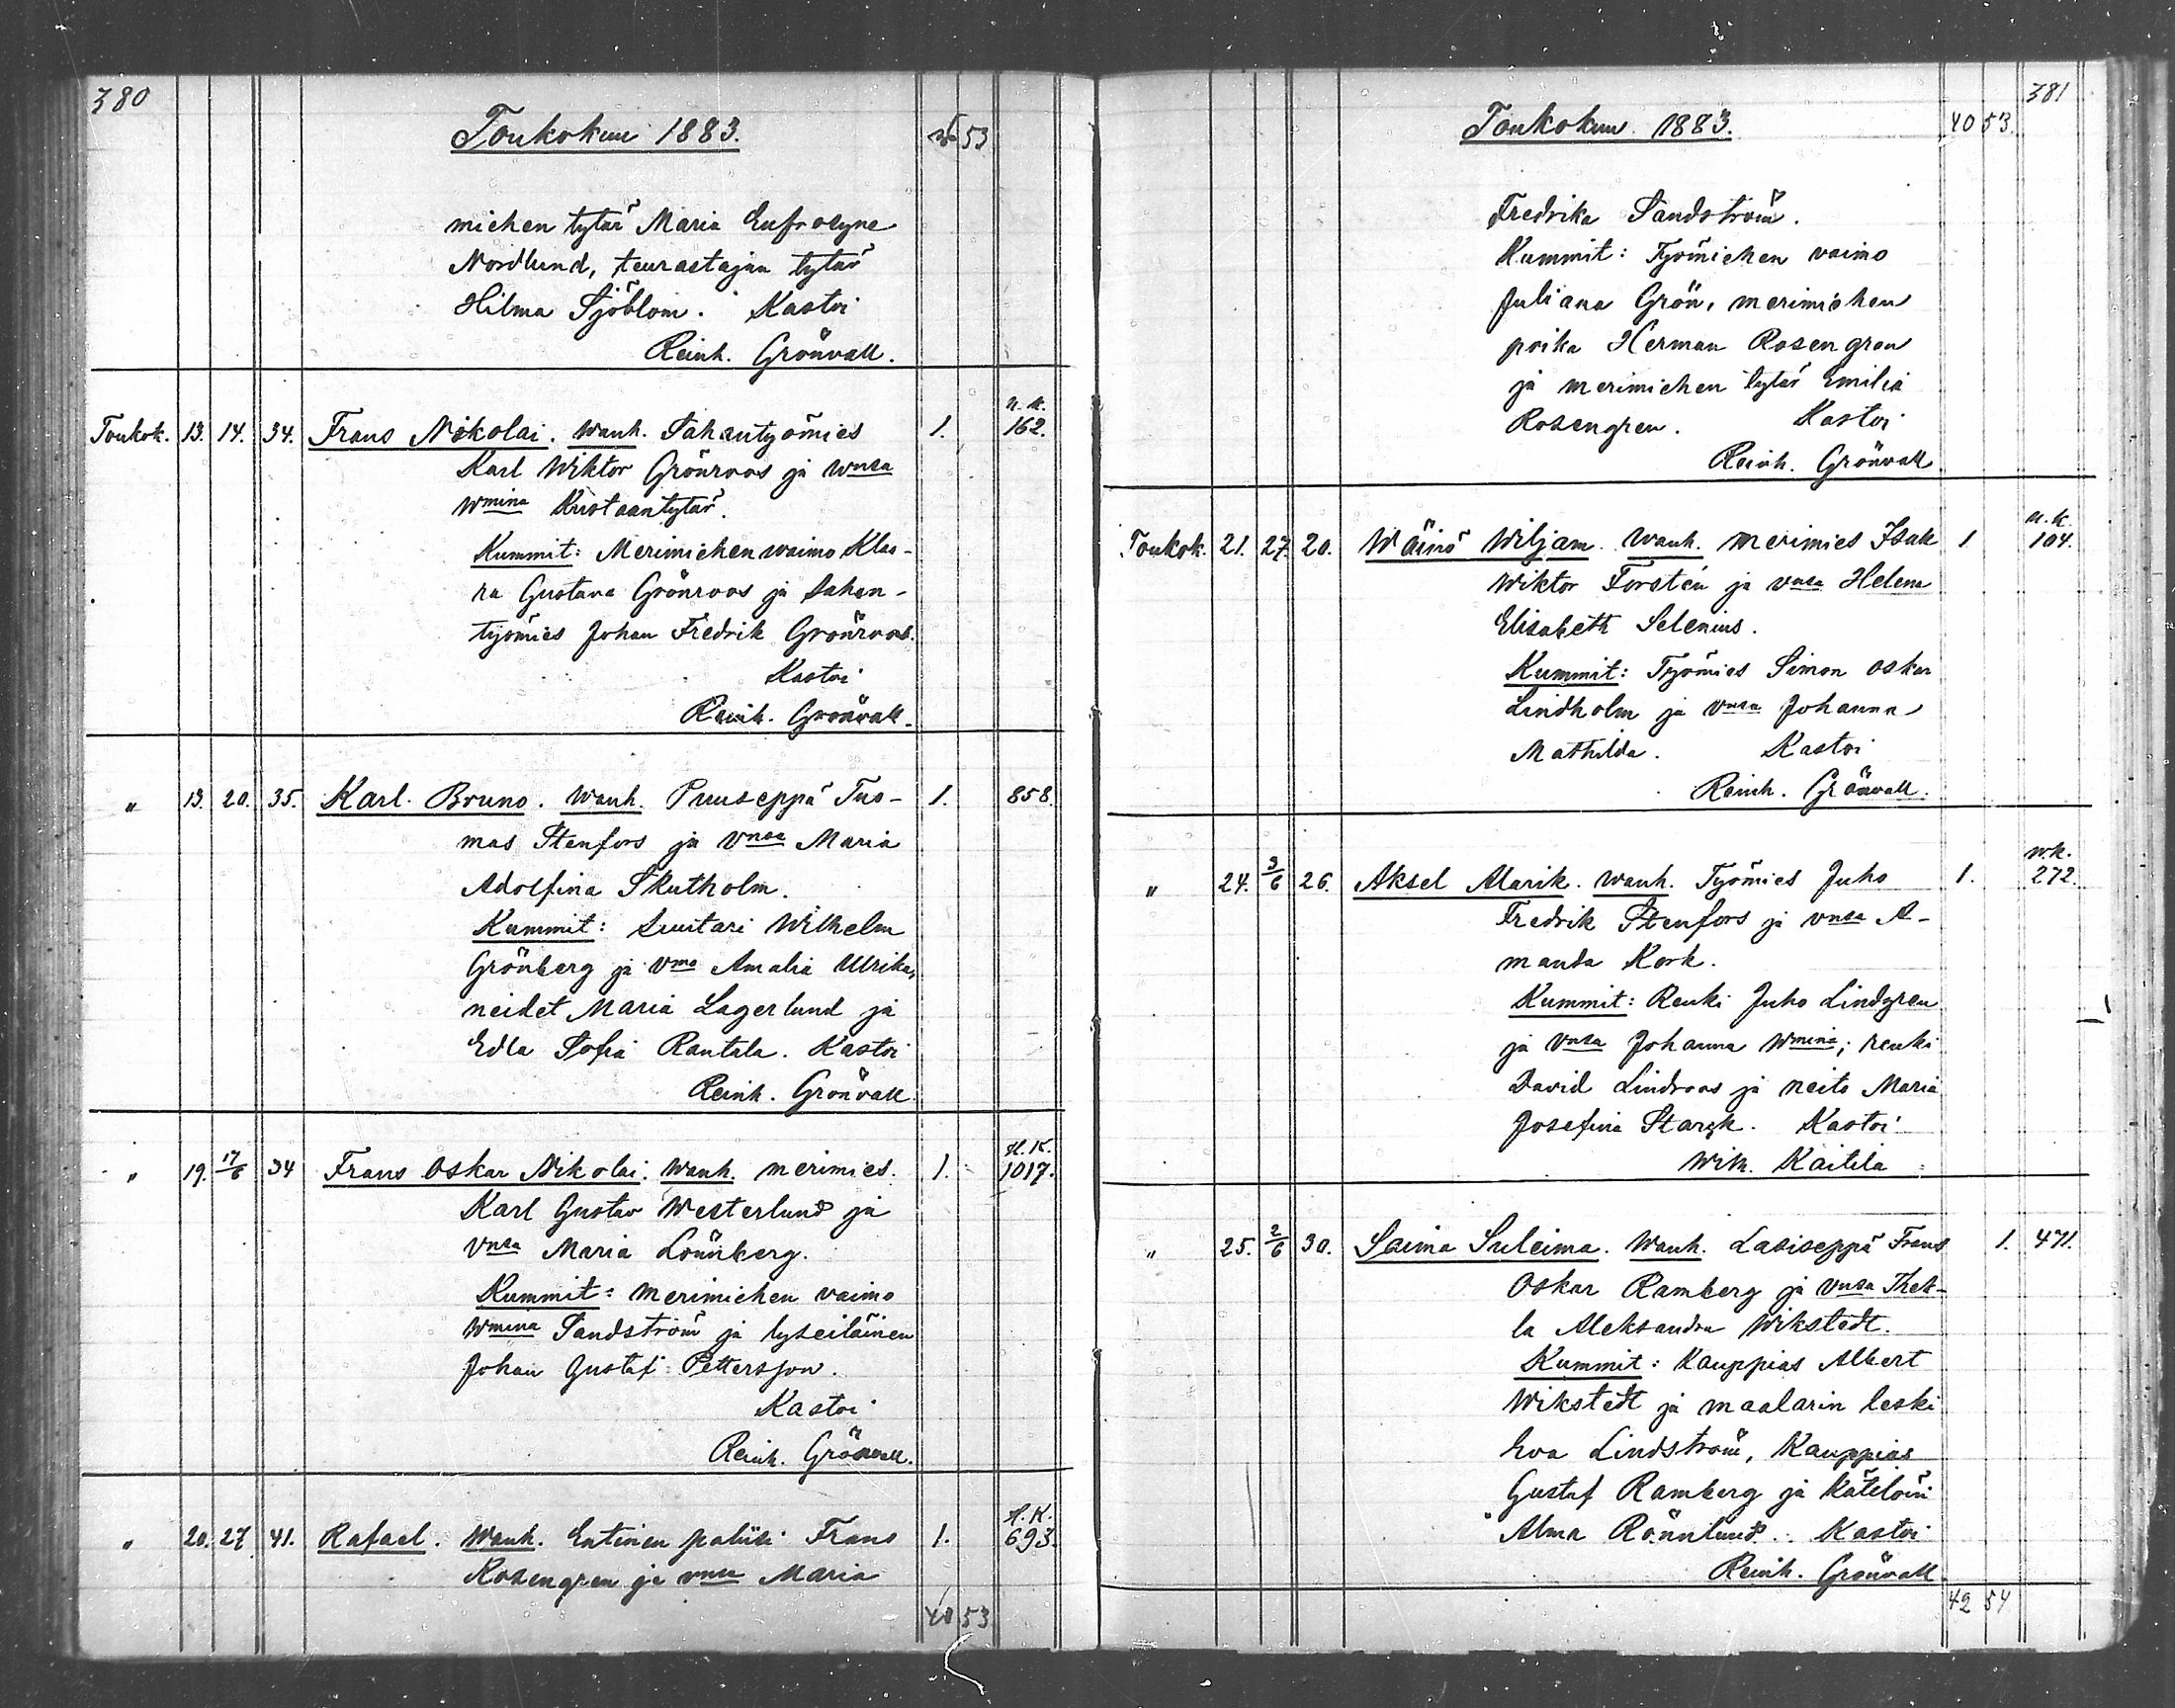 380
Toukokuu 1883.
53
miehen tytär Maria Eufrosyne
Nordlund, teurastajan tytär
Hilma Sjöblom. Kastoi
Reinh. Grönvall.
Toukok. 13. 14. 34. Frans Nikolai. Wanh. Sahantyömies 1. n.k. 162.
Karl Wiktor Grönroos ja wnsa
Wmina Kustaantytär.
Kummit: Merimiehen waimo Klaa-
ra Gustava Grönroos ja sahan-
työmies Johan Fredrik Grönroos.
Kastoi
Reinh. Grönvall.
" 13. 20. 35. Karl Bruno. Wanh. Puuseppä Tuo- 1. 858.
mas Stenfors ja vnsa Maria
Adolfina Skutholm.
Kummit: Suutari Wilhelm
Grönberg ja vmo Amalia Ulrika,
neidet Maria Lagerlund ja
Edla Sofia Rantala. Kastoi
Reinh. Grönvall
" 19. 17/6 34 Frans Oskar Nikolai. Wanh. merimies 1. 1017.
Karl Gustav Westerlund ja
vnsa Maria Lönnberg.
Kummit: merimiehen vaimo
Wmina Sandström ja lyseiläinen
Johan Gustaf Pettersson.
Kastoi
Reinh. Grönvall.
" 20. 27 41. Rafael. Wanh. Entinen poliisi Frans 1. 693.
Rosengren ja vnsa Maria
40 53
381
Toukokuu 1883.
40 53.
Fredrika Sandström.
Kummit: Työmiehen vaimo
Juliana Grön, merimiehen
poika Herman Rosengren
ja merimiehen tytär Emilia
Rosengren. Kastoi
Reinh. Grönvall
Toukok. 21. 27. 20. Wäinö Wiljam. Wanh. merimies Isak 1 n.k. 104.
Wiktor Forstén ja vnsa Helena
Elisabeth Selenius.
Kummit: Työmies Simon Oskar
Lindholm ja vnsa Johanna
Mathilda. Kastoi
Reinh. Grönvall.
" 24. 3/6 26. Aksel Alarik. Wanh. Työmies Juho 1. w.k. 272.
Fredrik Stenfors ja vnsa A-
manda Kork.
Kummit: Renki Juho Lindgren
ja vnsa Johanna Wmina; renki
David Lindroos ja neito Maria
Josefina Starck. Kastoi
Wilh. Kaitila
" 25. 2/6 30. Saima Suleima. Wanh. Lasiseppä Frans 1. 471.
Oskar Ramberg ja vnsa Thek-
la Aleksandra Wikstedt.
Kummit: Kauppias Albert
Wikstedt ja maalarin leski
Eva Lindström, Kauppias
Gustaf Ramberg ja kätilön
Alma Rönnlund. Kastoi
Reinh. Grönvall
42 54